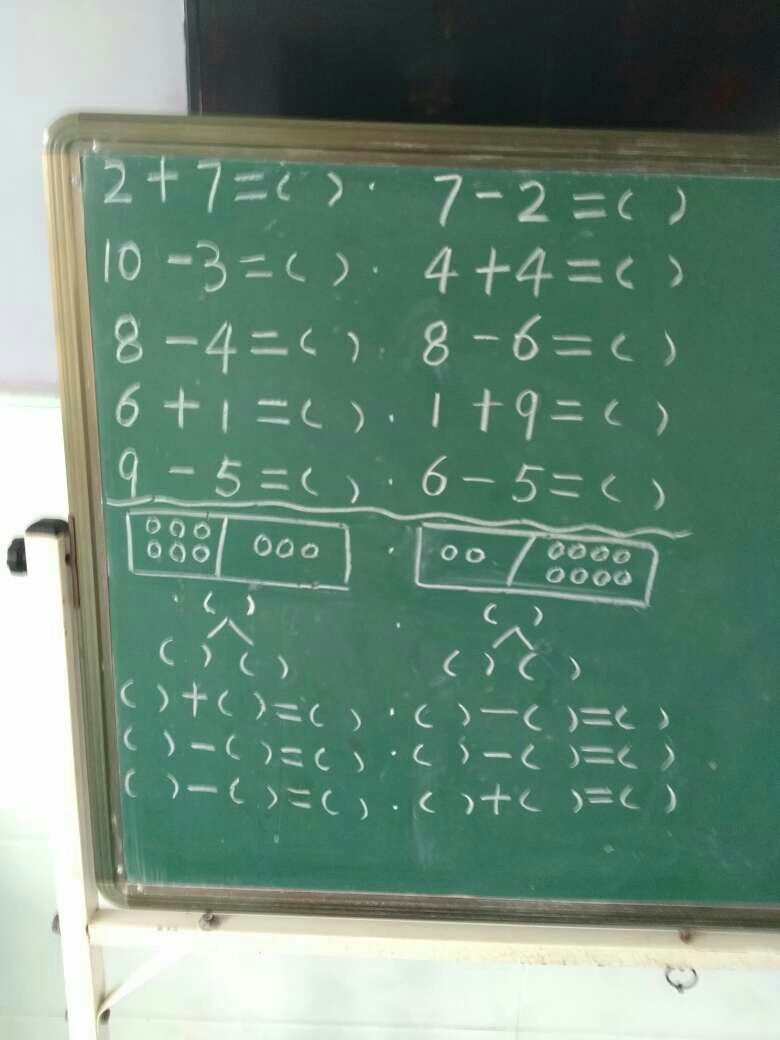 2+7=( ). 7-2=( )
10-3=( ). 4+4=( )
8-4=( ). 8-6=( )
6+1=( ). 1+9=( )
9-5=( ). 6-5=( )
( ) . ( )
( ) ( ) ( ) ( )
( )+( )=( ). ( )-( )=( )
( )-( )=( ). ( )-( )=( )
( )-( )=( ). ( )+( )=( )